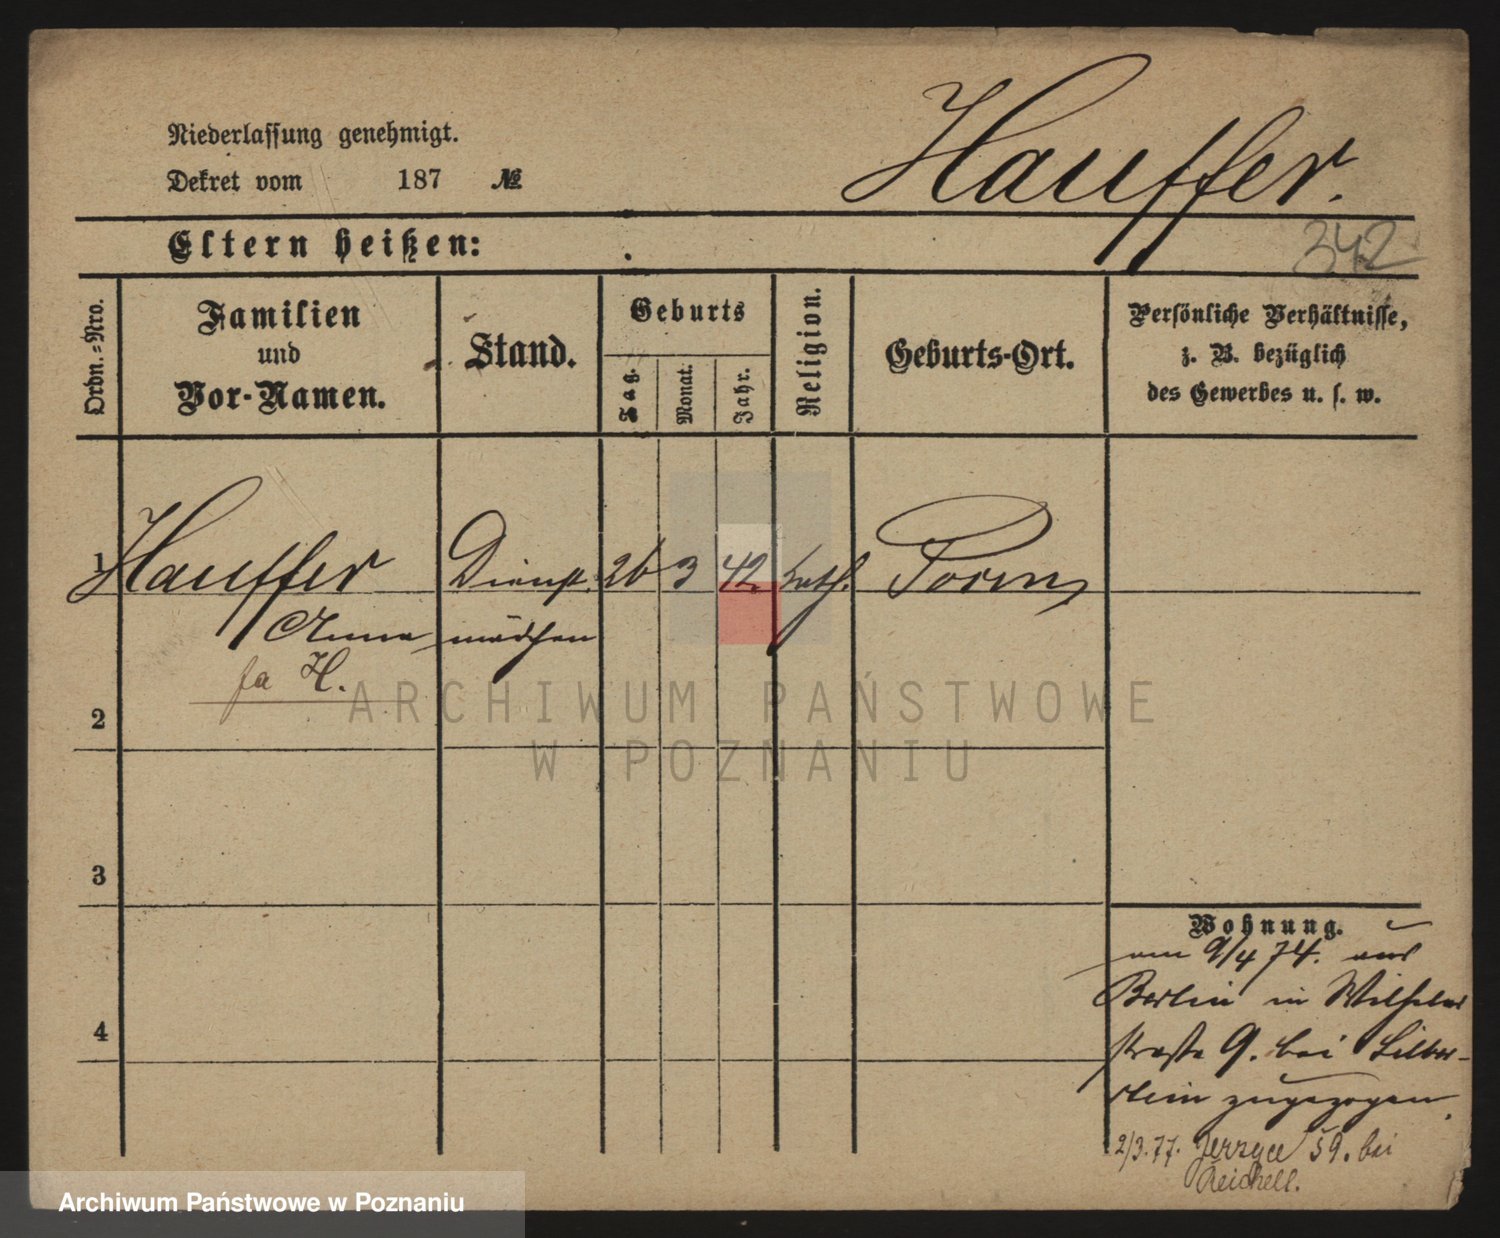 Hauffer.
Niederlassung genehmigt.
Dekret vom 187 №
342
Eltern heißen:
Ordn.-Nro.
Familien
und
Vor-Namen.
Stand.
Geburts
Tag.
Monat.
Jahr.
Religion.
Geburts-Ort.
Persönliche Verhältnisse,
z. B. bezüglich
des Gewerbes u. s. w.
1 Hauffer Dienst 26 3 42 kath. Posen
Anna mädchen
fa H.
2
3
4
Wohnung.
am 9/4 74. aus
Berlin in Wilhelms
straße 9. bei Silber-
stein zugezogen.
2/3.77. Jerzyce 59. bei
Reichell.
ARCHIWUM PAŃSTWOWE
W POZNANIU
Archiwum Państwowe w Poznaniu